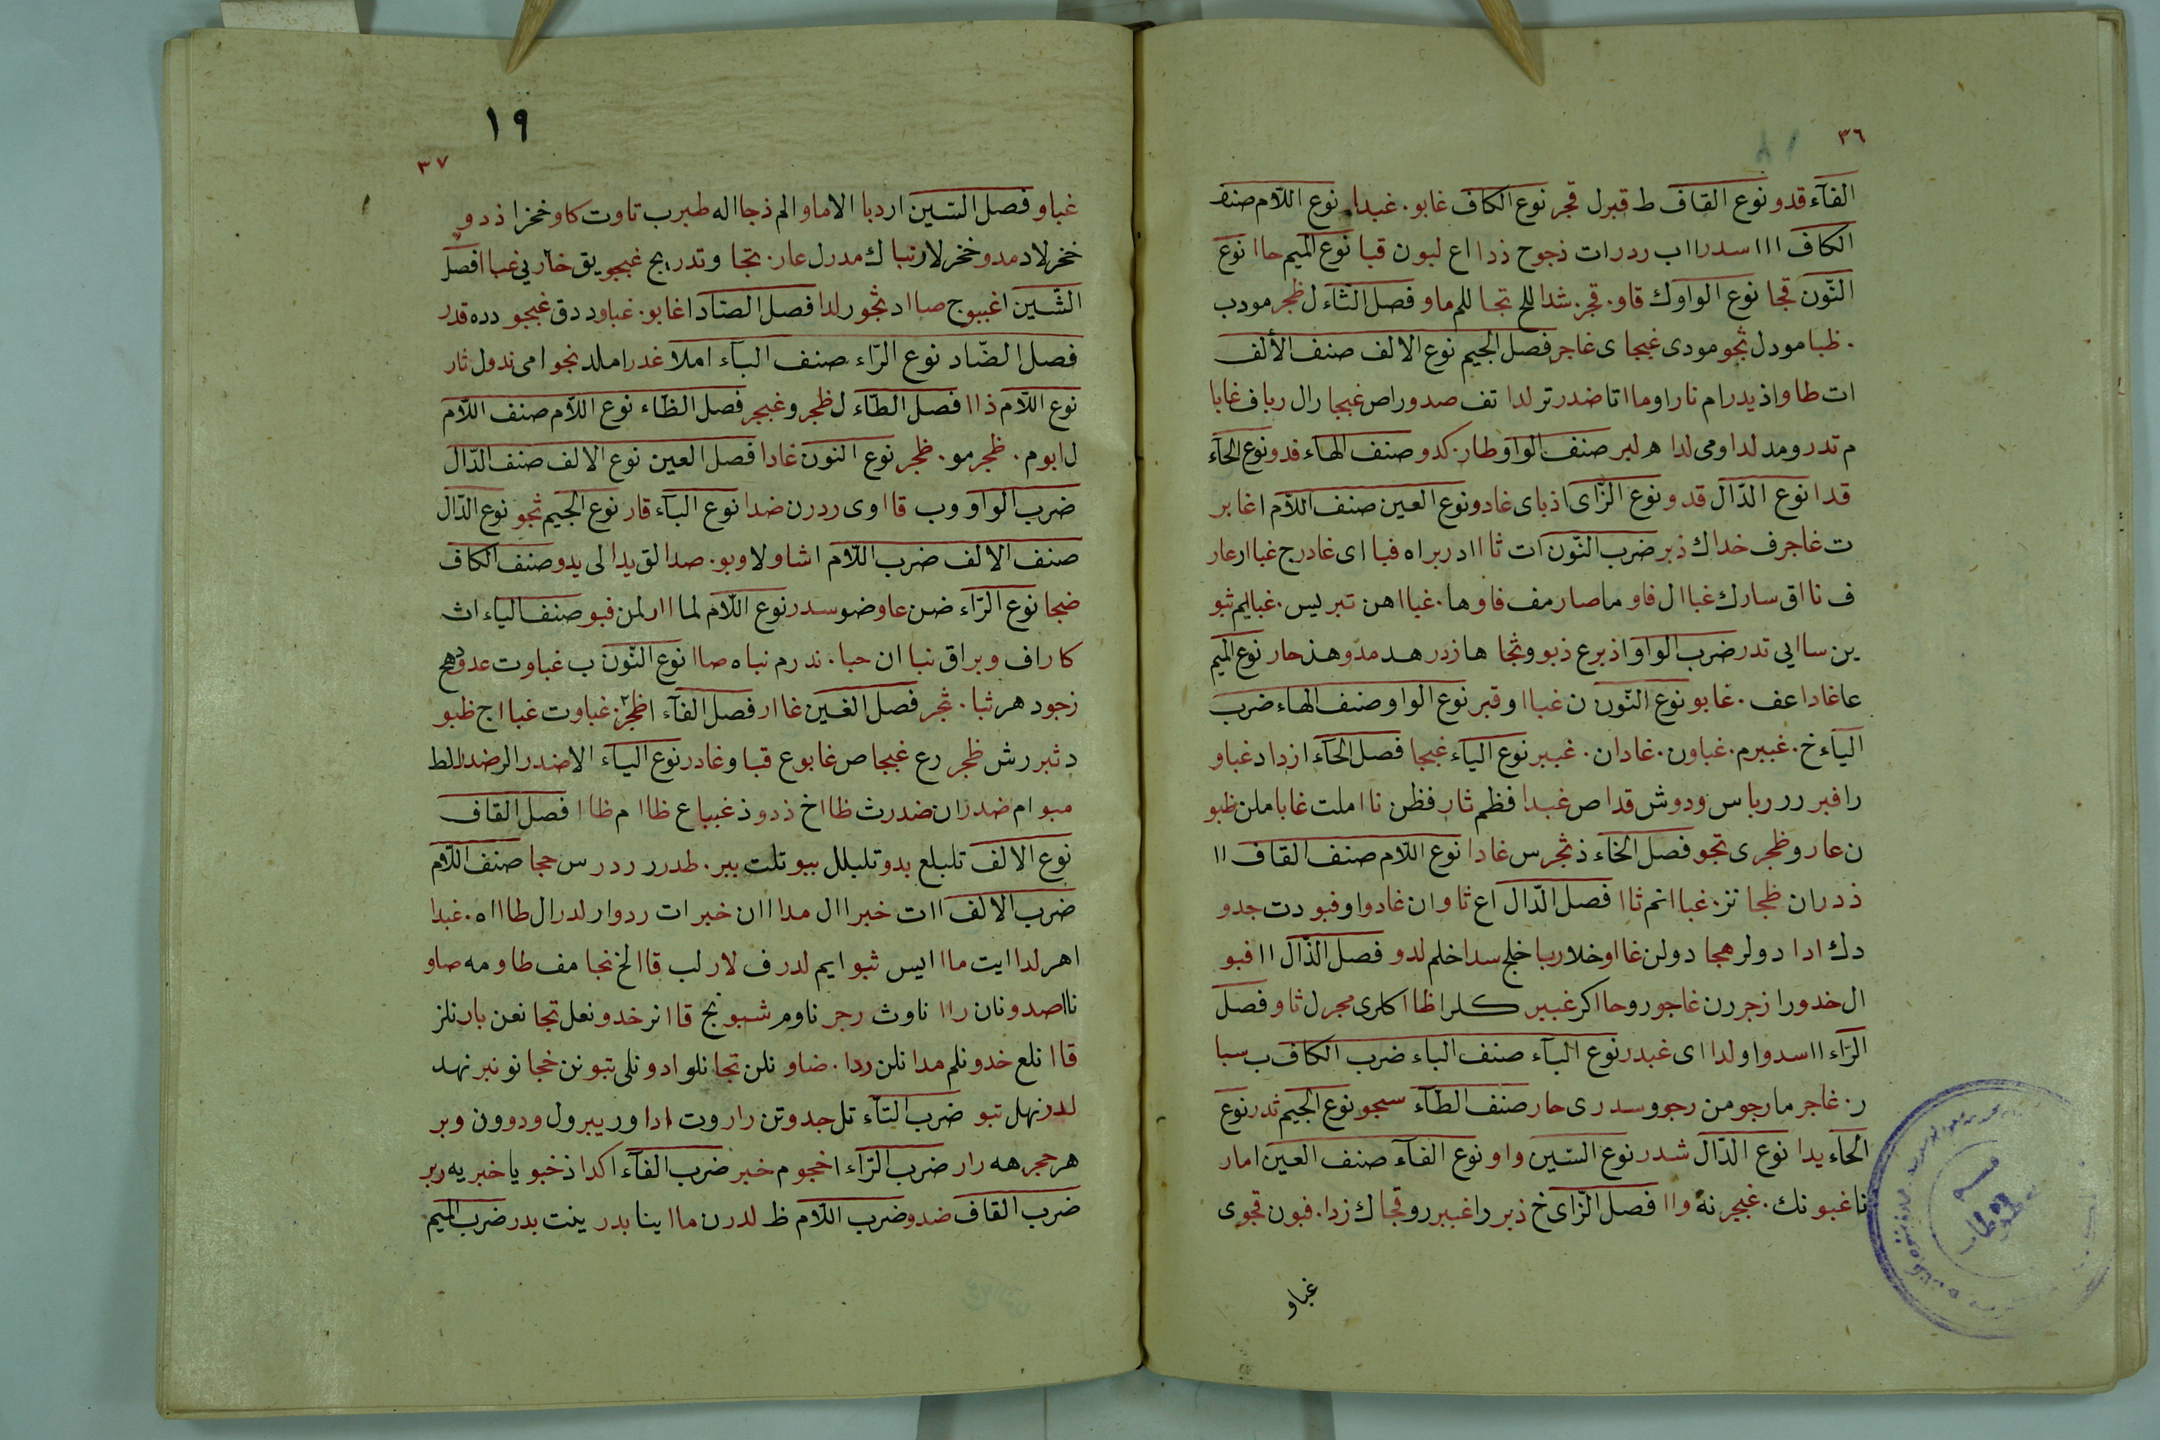 ٣٦
الفآء قدو نوع القاف ط قبرل قجر نوع الكاف غابو. غبدا. نوع اللّام صنف
الكاف ااا سدرا اب ردرات ذجوح ذدا اع لبون قبا نوع الميم حاا نوع
النّون قجا نوع الواو ك قاو. قجز. شدا للح تجا للم ماو فصل الثّاء ل ظجر مودب
. ظبا مودل ثجو مودى غبجا ى غاجر فصل الجيم نوع الالف صنف الألف
ات طاو اذ يدر ام نار اوما اتا ضدر تر لدا تف صدو راص غبجا رال رباف غابا
م تدرومد لداومى لدا هر لبر صنف الواو طار. كدو صنف الهاء قدو نوع الحآء
قدا نوع الدّال قدو نوع الزّاى اذباى غادو نوع العين صنف اللّام اغابر
ت غاجرف خداك ذبر ضرب النّون ات ثاا ادربراه فبا اى غادرج غبا ارعار
ف نااق سارك غبا ال فاو ماصارمف فاوها. غبا اهن تبريس. غبايم ثبو
ين ساايى تدر ضرب الواو اذبرع ذبو وثجا هازدر هد مدو هذ حار نوع الميم
عاغادا عف. غابو نوع النّون ن غباا وقبر نوع الواو صنف الهاء ضرب
الياء خ. غببرم. غباون. غادان. غببر نوع الياء غبجا فصل الحآء ازداد غباو
رافبر رر رباس ودوش قداص غبدا فظم ثار فظن ناا ملت غابا ملن ظبو
ن عار وظجرى تجو فصل الخاء ذ ثجرس غادا نوع اللّام صنف القاف اا
ذدران ظجا نز. غبا انم ثاا فصل الدّال اع ثاوان غادواو فبو دت جدو
دك ادا دولر هجا دولن غااو خلا ربا خلج سدا خلم لدو فصل الذّال اا فبو
ال خدورا زجررن غاجو روحا اكر غببر كلرا ظاا كلرى مجرل ثاو فصل
الرّاء اا سدو اولدا اى غبدر نوع البآء صنف الباء ضرب الكاف ب سبا
ر. غاجر مارجو من رجو وسدرى حار صنف الطّآء سجو نوع الجيم ثدر نوع
الحاء يدا نوع الدّال شدر نوع السّين واو نوع الفآء صنف العين امار
نا غبو نك. غبجر نه واا فصل الزّاى خ ذبر را غببر رو قجا ك زدا. فبون قجوى
غباو
١٩
٣٧
غباو فصل السّين اردبا الاماو الم ذجا اله طبرب تاوت كاو خخزا ذدو
خخرلاد مدو خخر لار نباك مدرل عار. تجا وتدر بح غبجو يق خار بي غباا فصل
الشّين اغببوج صاا د ثجو رلدا فصل الصّاد اغابو. غباو ددق غبجو دده قدر
فصل الضّاد نوع الرّاء صنف البآء املا غدرا ملد نجو امى ندول ثار
نوع اللّام ذاا فصل الطّاء ل ظجر وغبجر فصل الظّاء نوع اللّام صنف اللّام
ل ابوم. ظجرمو. ظجر نوع النون غادا فصل العين نوع الالف صنف الدّال
ضرب الواو وب قا اوى ردرن ضدا نوع البآء قار نوع الجيم ثجو نوع الدّال
صنف الالف ضرب اللّام اشاو لاوبو. صدا لق يدا لى يدو صنف الكاف
ضجا نوع الرّاء ضن عاو ضو سدر نوع اللّام لما اار لمن فبو صنف الياء اث
كاراف وبراق نبا ان حبا. ندرم نباه صاا نوع النّون ب غباوت عدو هج
زجود هر ثبا. ثجر فصل الغين غاار فصل الفآء اظجز. غباوت غبا اج ظبو
د ثبر رش ظجر رع غبجاص غابوع قبا وغادر نوع الياء الاضدر الر ضدر للط
مبو ام ضدر ان ضدرث ظااخ ذدوذ غبباع ظاا م ظاا فصل القاف
نوع الالف تلبلع بدو تلبلل ببو تلت ببر. طدرر ردرس حجا صنف اللّام
ضرب الالف اات خبر اال مدا اان خبرات ردوار لدرال طا ااه. غبدا
اهر لدا ايت ماا ايس ثبو ايم لدرف لار لب قا الخ نجا مف طاو مه صاو
نا اصدو نان راا ناوث رجر ناوم شبو نج قا انر خدو نعل تجا نعن بار نلز
قا انلع خدو نلم مدا نلن ردا. ضاو نلن تجا نلو ادو نلى تبو نن خجا نو نبر نهد
لدر نهل تبو ضرب التآء تل جدو تن راروت ادا ور يبرول ودوون وبر
هر حجرهه رار ضرب الرّاء اخجوم خبر ضرب الفآء اكدا ذخبو يا خبريه ربر
ضرب القاف ضدو ضرب اللّام ظ لدرن ماا ينا بدر ينت بدر ضرب الميم